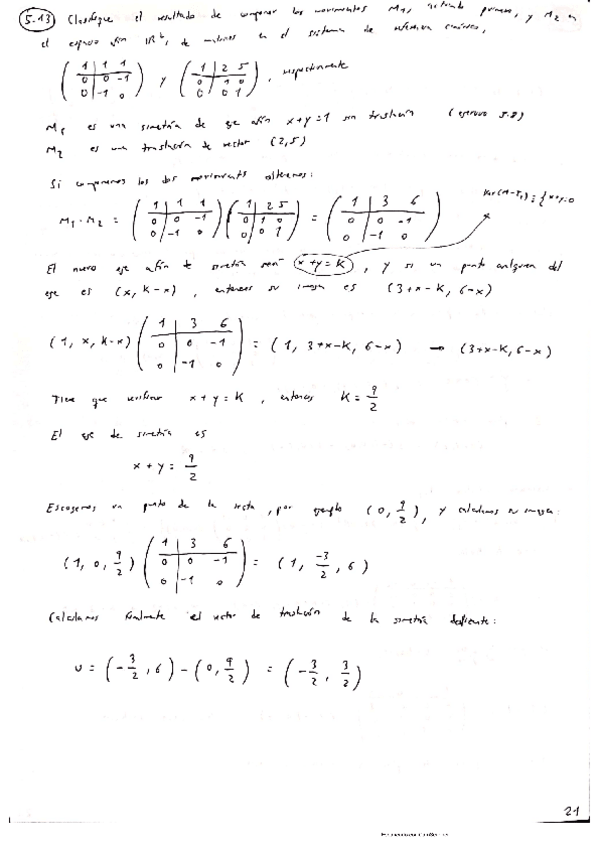 5.13) Clasifique el resultado de componer los movimientos M₁, actuando primero, y M₂ en
el espacio afín ℝ², de matrices en el sistema de referencia canónico,
( 1 | 1 1 ; 0 | 0 -1 ; 0 | -1 0 ) y ( 1 | 2 5 ; 0 | 1 0 ; 0 | 0 1 ), respectivamente
M₁ es una simetría de eje afín x+y=1 sin traslación (ejercicio 5.8)
M₂ es una traslación de vector (2,5)
Si componemos los dos movimientos
M₁·M₂ = ( 1 | 1 1 ; 0 | 0 -1 ; 0 | -1 0 ) ( 1 | 2 5 ; 0 | 1 0 ; 0 | 0 1 ) = ( 1 | 3 6 ; 0 | 0 -1 ; 0 | -1 0 )
El nuevo eje afín de simetría será x+y=K, y si un punto cualquiera del
eje es (x, K-x), entonces su imagen es (3+x-K, 6-x)
(1, x, K-x) ( 1 | 3 6 ; 0 | 0 -1 ; 0 | -1 0 ) = (1, 3+x-K, 6-x) → (3+x-K, 6-x)
Tiene que verificar x+y=K, entonces K = 9/2
El eje de simetría es
x+y = 9/2
Escogemos un punto de la recta, por ejemplo (0, 9/2), y calculamos su imagen:
(1, 0, 9/2) ( 1 | 3 6 ; 0 | 0 -1 ; 0 | -1 0 ) = (1, -3/2, 6)
Calculamos finalmente el vector de traslación de la simetría deslizante:
u = (-3/2, 6) - (0, 9/2) = (-3/2, 3/2)
21